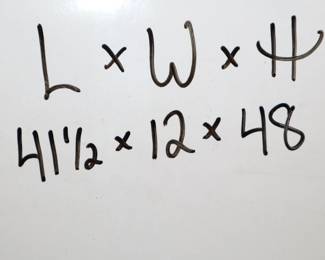 L x W x H
41 1/2 x 12 x 48